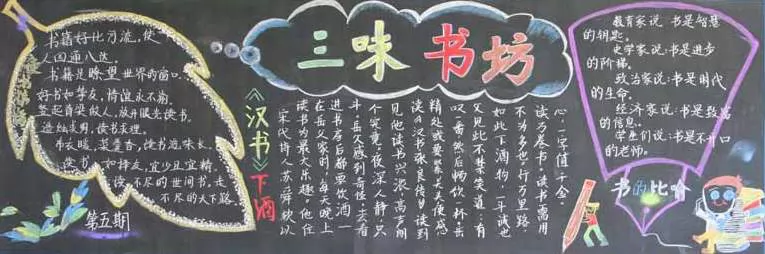 书籍好比 流，使
人四通八达。
书籍是瞭望世界的窗口。
好书如挚友，情谊永不渝
竖起脊梁做人，放开眼光读书。
造烛求明，读书求理。
布衣暖，菜羹香，读书滋味长。
读书 如择友，宜少且宜精。
读不尽的世间书，走
不尽的天下路。
第五期
三味书坊
《汉书》下酒
宋代诗人苏舜钦以
读书为最大乐趣。他住
在岳父家时，每天晚上
进书房后都要饮酒一
斗。岳父感到奇怪，去看
个究竟。夜深人静，只
见他读书兴浓，高声朗
读《汉书张良传》，读到
精处或要紧关头便感
叹一番，然后畅饮一杯。岳
父见此不禁笑道：有
如此下酒物，一斗诚也
不为多也。行万里路，
读万卷书。读书需用
心，一字值千金。
教育家说：书是智慧
的钥匙。
史学家说：书是进步
的阶梯。
政治家说：书是时代
的生命。
经济家说：书是致富
的信息。
学生们说：书是不开口
的老师。
书的比喻